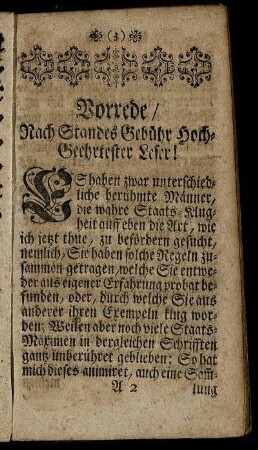 (3)
Vorrede/
Nach Standes Gebühr Hoch-
Geehrtester Leser!
ES haben zwar unterschied-
liche berühmte Männer,
die wahre Staats-Klug-
heit auff eben die Art, wie
ich jetzt thue, zu befördern gesucht,
nemlich, Sie haben solche Regeln zu-
sammen getragen, welche Sie entwe-
der aus eigener Erfahrung probat be-
funden, oder, durch welche Sie aus
anderer ihren Exempeln klug wor-
den; Weilen aber noch viele Staats-
Maximen in dergleichen Schrifften
gantz unberühret geblieben: So hat
mich dieses animiret, auch eine Sam̃-
A 2 lung